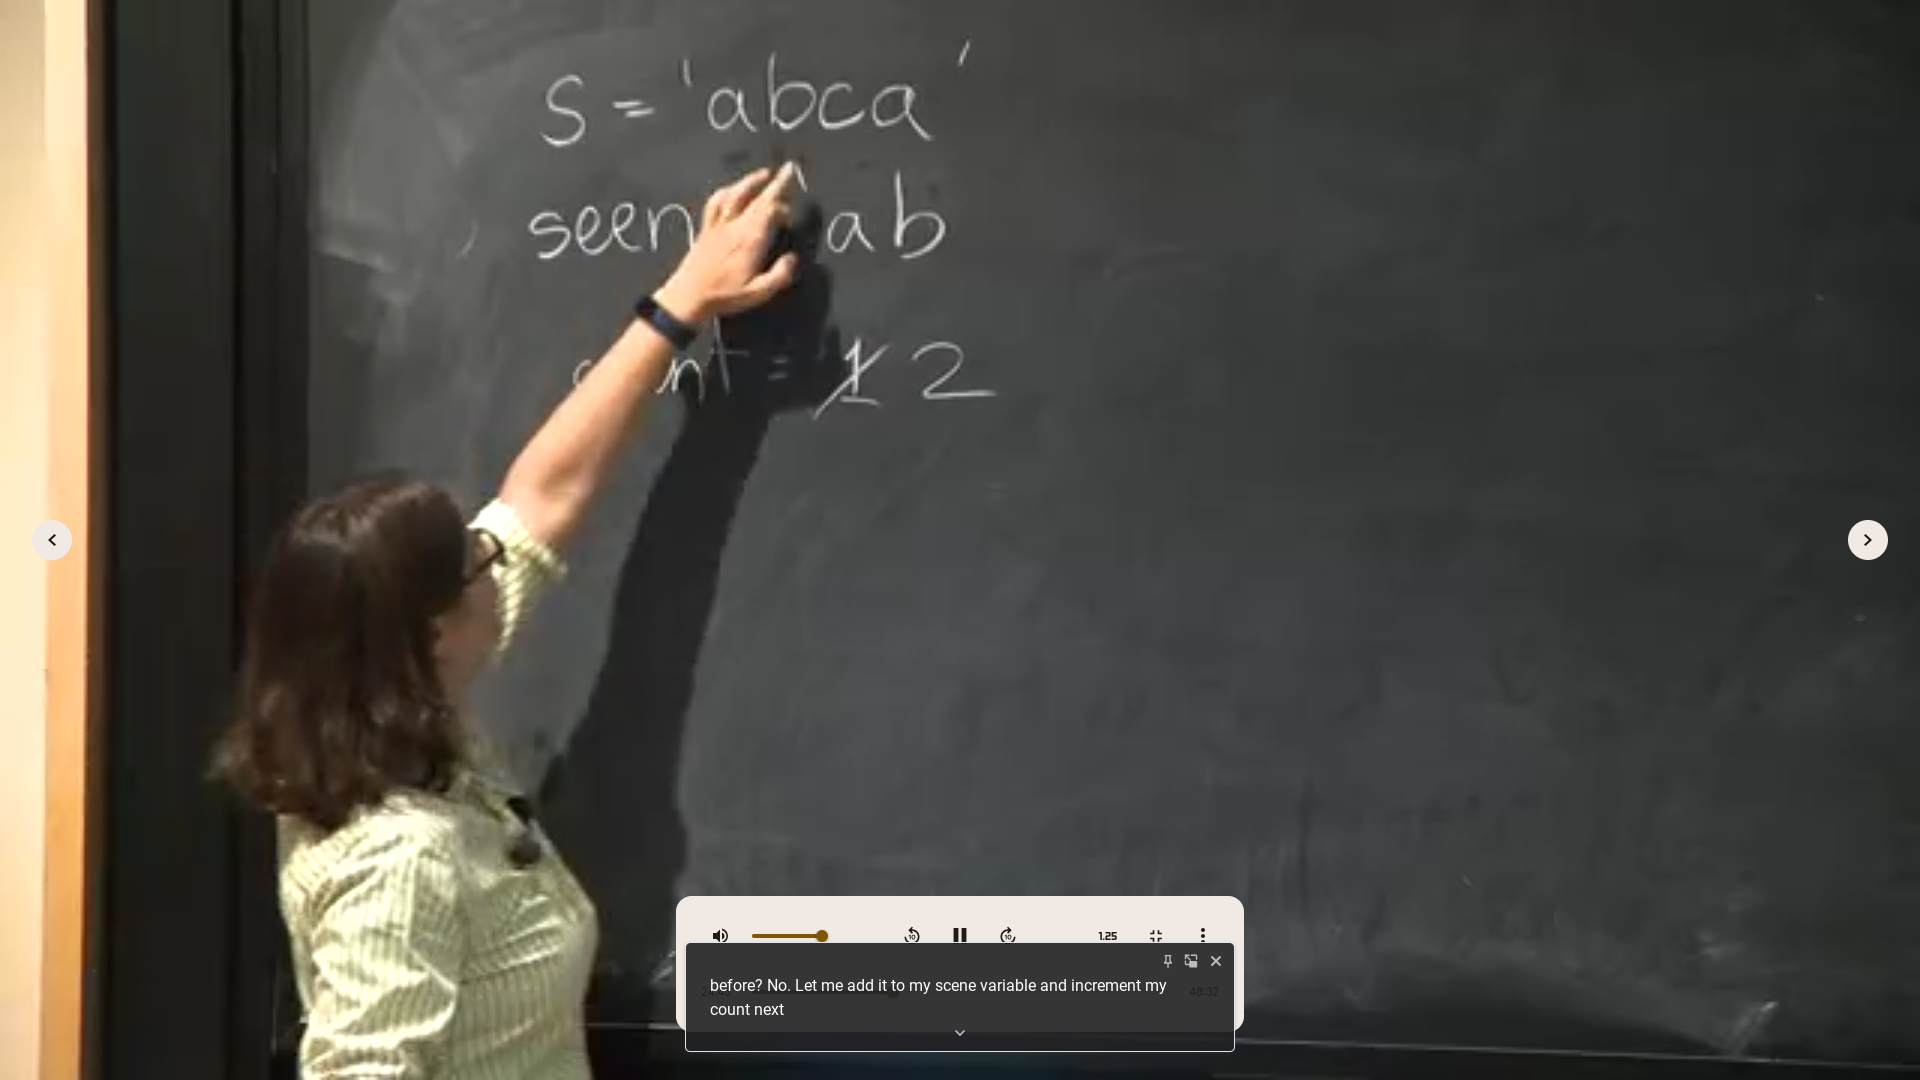 s = 'abca'
seen ab
nt = 1 2
1.25
before? No. Let me add it to my scene variable and increment my
count next
48:32